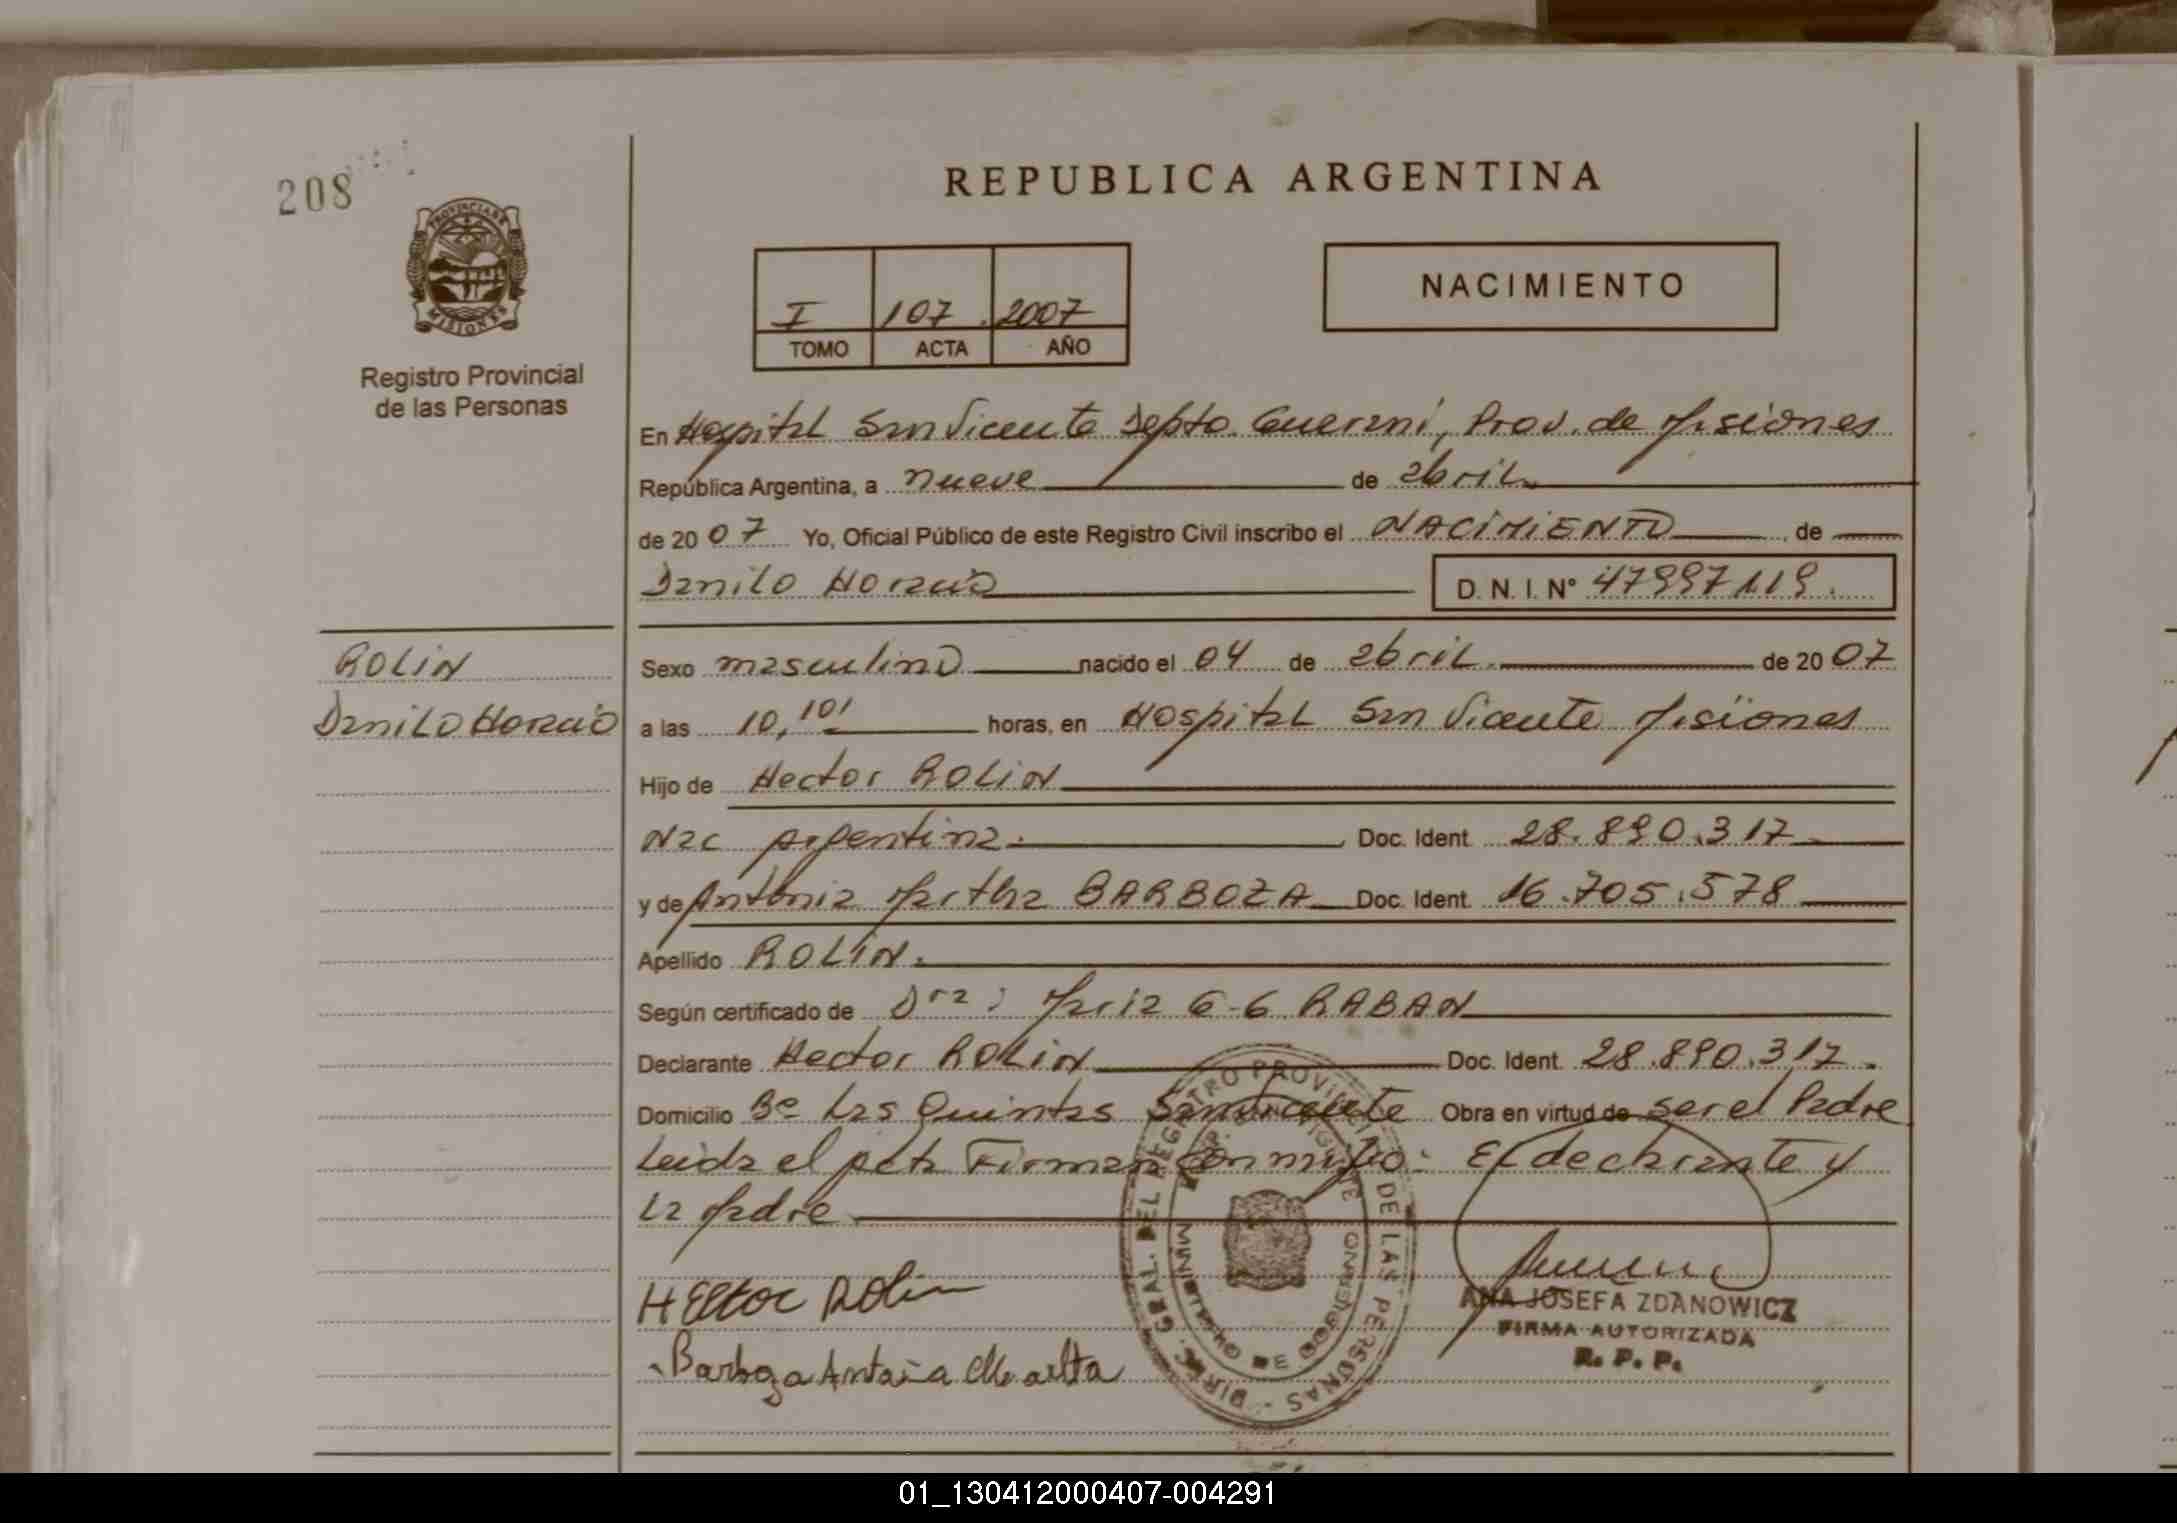 208
PROVINCIA DE
MISIONES
Registro Provincial
de las Personas
REPUBLICA ARGENTINA
I 107 2007
TOMO ACTA AÑO
NACIMIENTO
En Hospital San Vicente Depto. Guarani, Prov. de Misiones
República Argentina, a nueve de abril
de 2007 Yo, Oficial Público de este Registro Civil inscribo el NACIMIENTO de
Danilo Horacio D. N. I. N° 47997119.
ROLIN
Danilo Horacio
Sexo masculino nacido el 04 de abril de 2007
a las 10,10' horas, en Hospital San Vicente Misiones
Hijo de Hector ROLIN
Nac Argentina. Doc. Ident. 28.890.317
y de Antonia Martha BARBOZA Doc. Ident. 16.705.578
Apellido ROLIN.
Según certificado de Dra: Maria G-G RABAN
Declarante Hector ROLIN Doc. Ident. 28.890.317.
Domicilio Bº Las Quintas San Vicente Obra en virtud de ser el Padre
Leida el acta Firman conmigo: El declarante y
La Madre
HECtor Rolin
Barboza Antonia Marta
DIREC. GRAL. DEL REGISTRO PROVINCIAL DE LAS PERSONAS
ANA JOSEFA ZDANOWICZ
FIRMA AUTORIZADA
R. P. P.
01_130412000407-004291